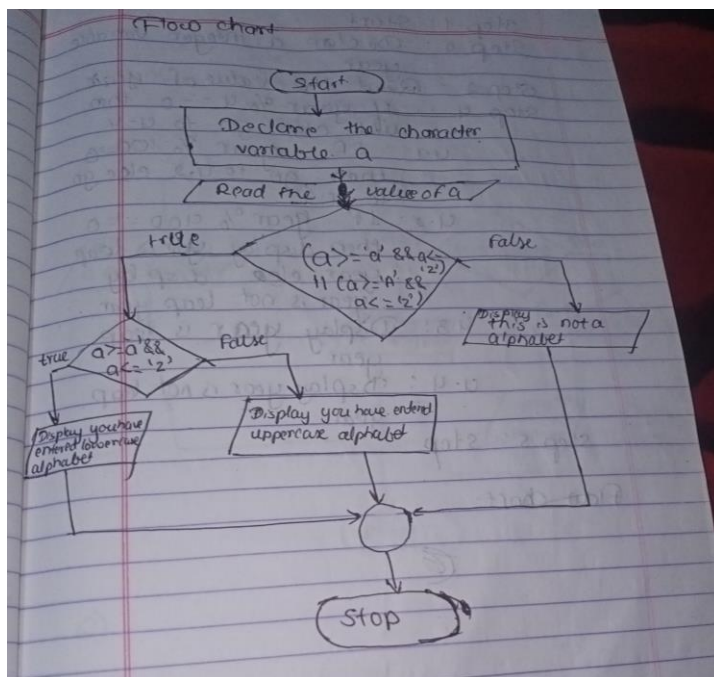 Flow chart
Start
Declare the character
variable a
Read the value of a
true
False
(a>='a' && a<=
'z')
|| (a>='A' &&
a<='z')
Display
this is not a
alphabet
true
a>=a' &&
a<='z'
False
Display you have
entered lowercase
alphabet
Display you have entered
uppercase alphabet
Stop